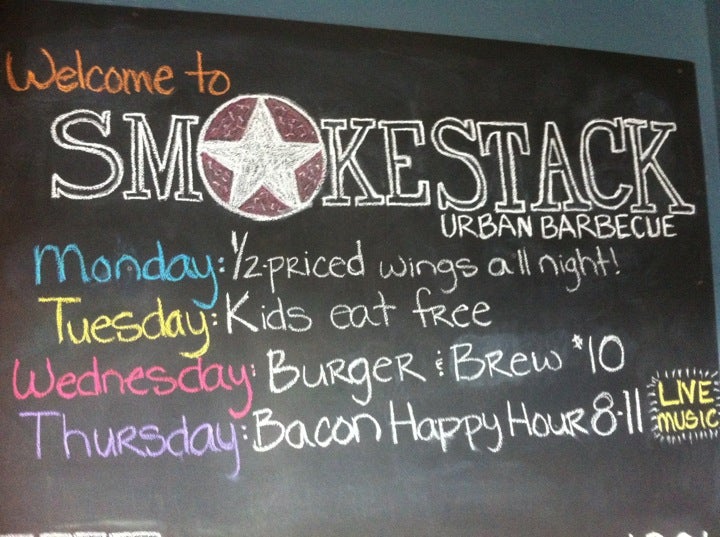 Welcome to
SMOKESTACK
URBAN BARBECUE
Monday: 1/2-priced wings all night!
Tuesday: Kids eat free
Wednesday: Burger & Brew $10
Thursday: Bacon Happy Hour 8-11
LIVE
MUSIC